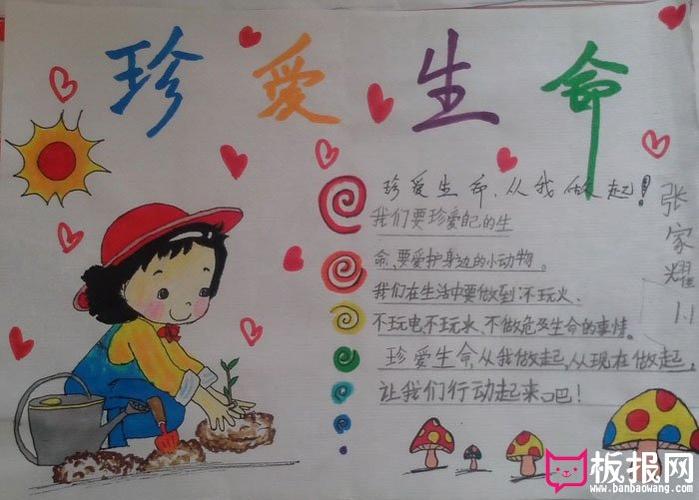 珍爱生命
珍爱生命,从我做起!
我们要珍爱自己的生
命,要爱护身边的小动物。
我们在生活中要做到:不玩火、
不玩电不玩水、不做危及生命的事情。
珍爱生命,从我做起,从现在做起,
让我们行动起来吧!
张家耀 1.1
板报网
www.banbaowang.com